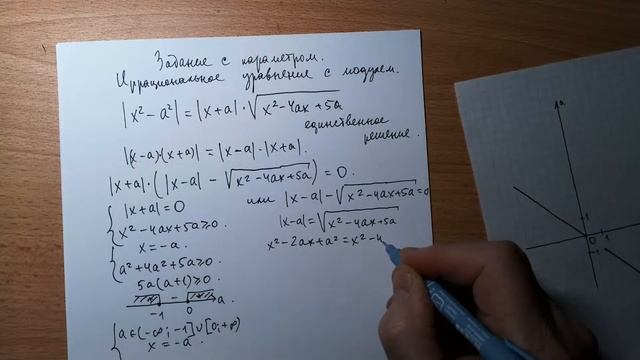 Задание с параметром.
Иррациональное уравнение с модулем.
|x²-a²| = |x+a|·√(x²-4ax+5a)
единственное
решение.
|(x-a)(x+a)| = |x-a|·|x+a|.
|x+a|·(|x-a| - √(x²-4ax+5a)) = 0.
{ |x+a|=0
x²-4ax+5a≥0.
x=-a.
{ a²+4a²+5a≥0.
5a(a+1)≥0.
- a
-1 0
{ a∈(-∞;-1]∪[0;+∞)
x=-a.
или |x-a|-√(x²-4ax+5a)=0
|x-a|=√(x²-4ax+5a)
x²-2ax+a²=x²-4
a
1
0 1